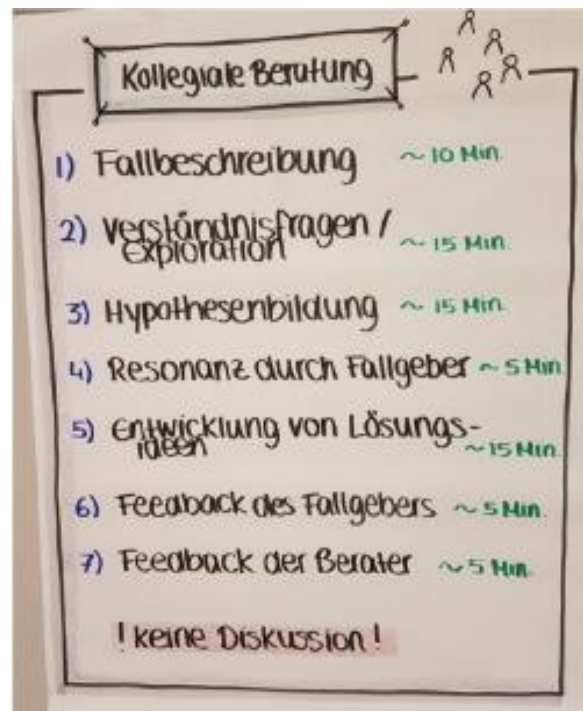 Kollegiale Beratung
1) Fallbeschreibung ~ 10 Min.
2) Verständnisfragen /
Exploration ~ 15 Min.
3) Hypothesenbildung ~ 15 Min.
4) Resonanz durch Fallgeber ~ 5 Min
5) Entwicklung von Lösungs-
ideen ~ 15 Min.
6) Feedback des Fallgebers ~ 5 Min.
7) Feedback der Berater ~ 5 Min.
! keine Diskussion !